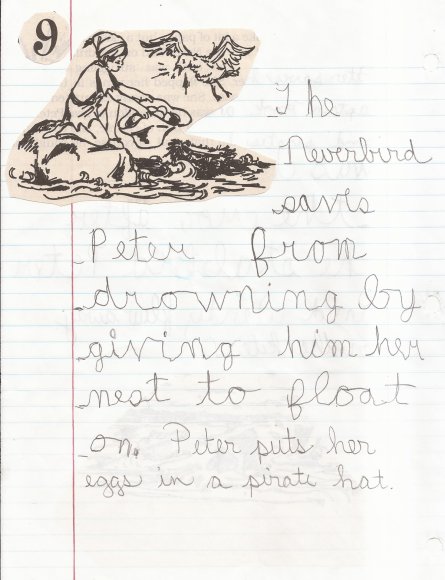 9
The
Neverbird
saves
Peter from
drowning by
giving him her
nest to float
on. Peter puts her
eggs in a pirate hat.